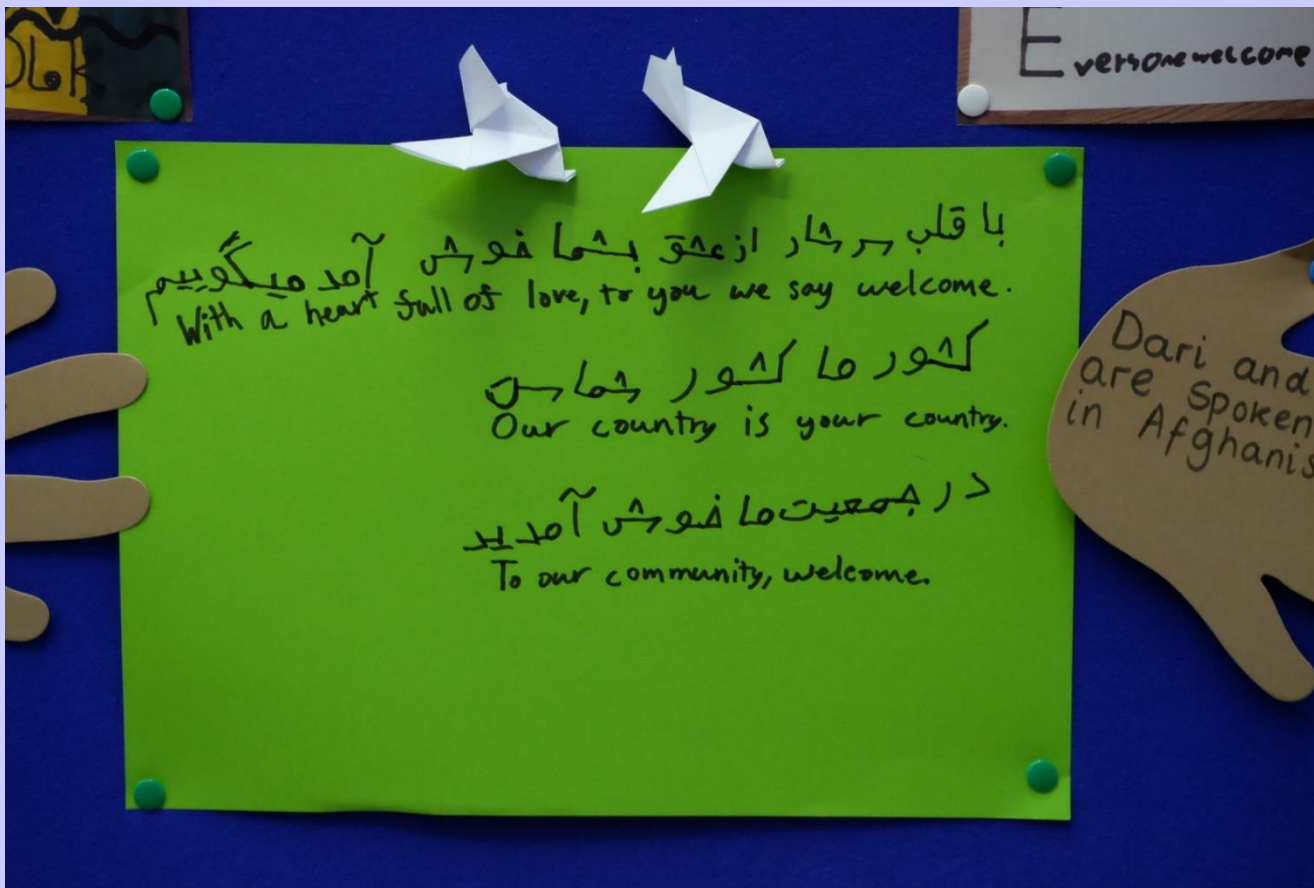 Everyone welcome
با قلب سرشار از عشق بشما خوش آمد میگوییم
With a heart full of love, to you we say welcome.
کشور ما کشور شماس
Our country is your country.
در جمعیت ما خوش آمدید
To our community, welcome.
Dari and
are spoken
in Afghanis